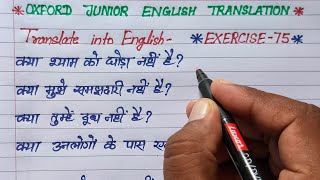 * OXFORD JUNIOR ENGLISH TRANSLATION *
Translate into English- * EXERCISE-75 *
क्या श्याम को घोड़ा नहीं है?
क्या मुझे समझदारी नहीं है?
क्या तुम्हें दूध नहीं है?
क्या उनलोगों के पास